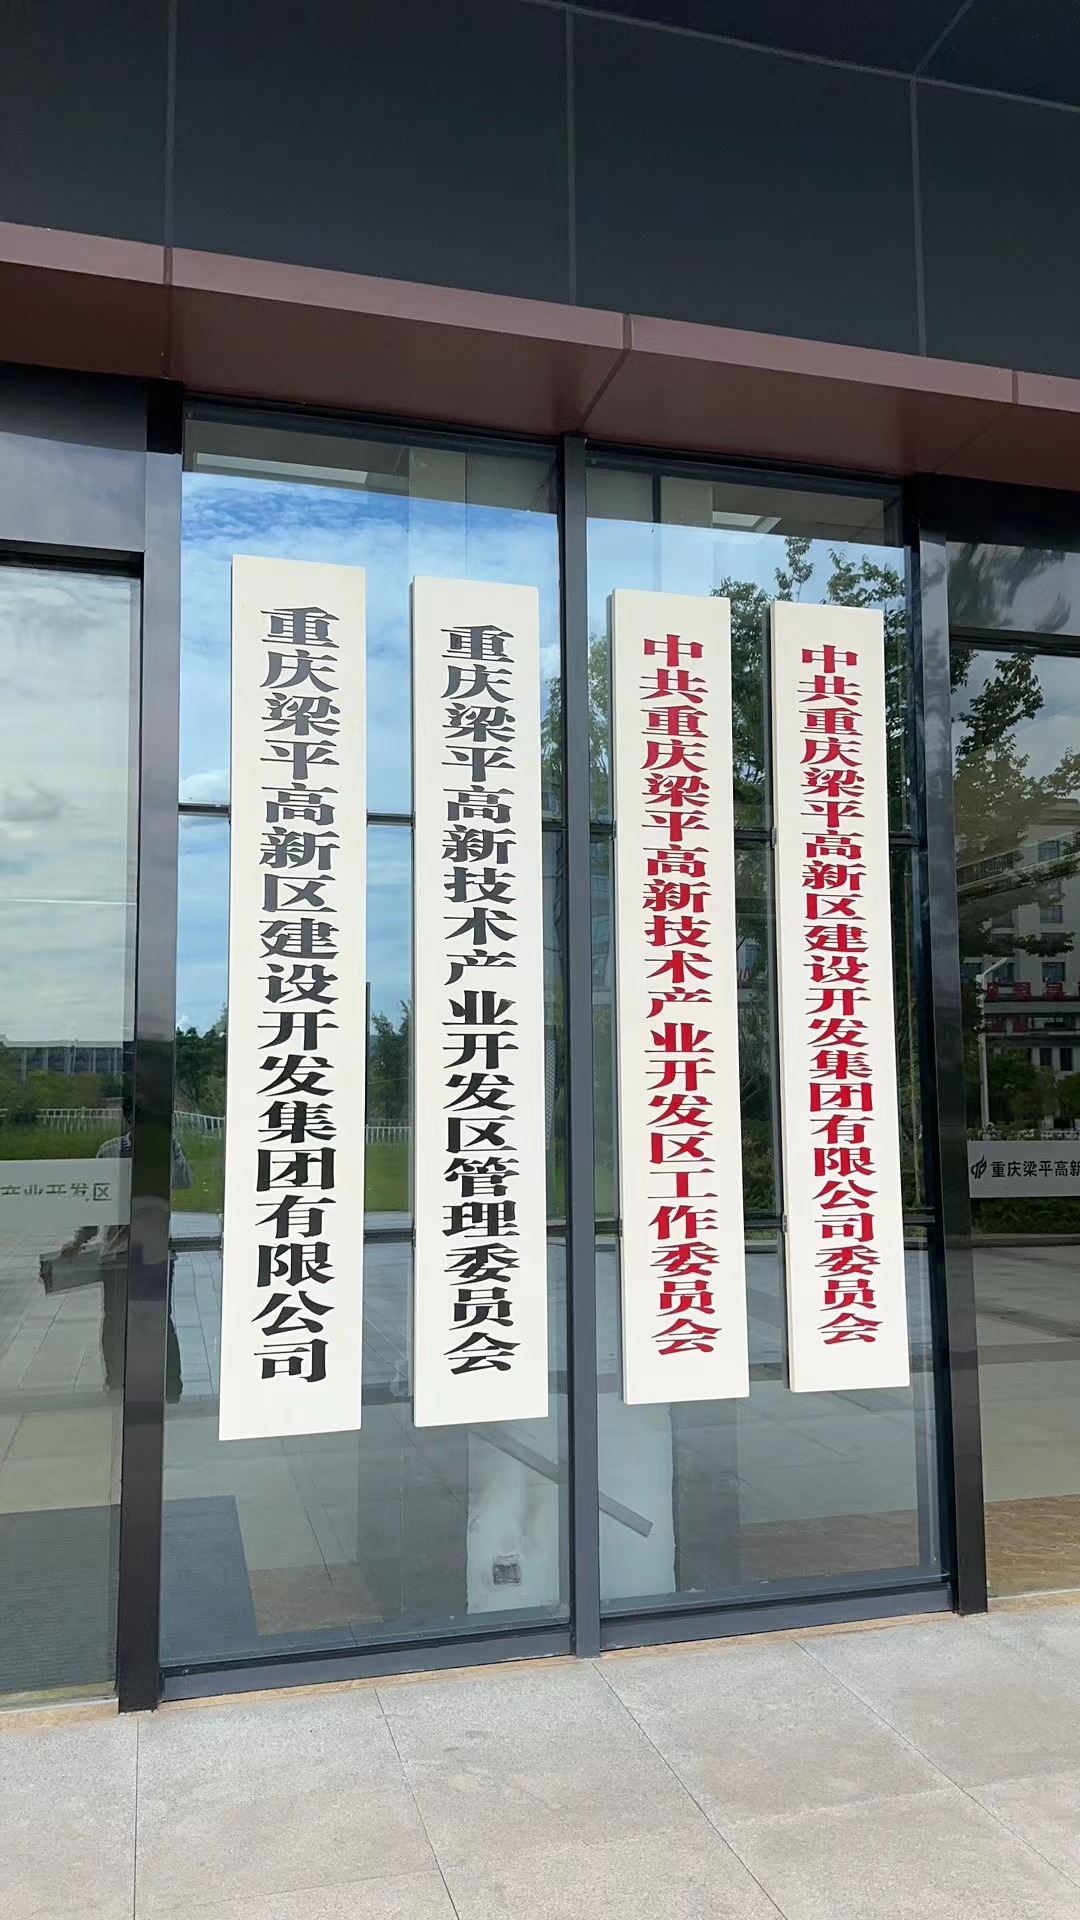 重庆梁平高新区建设开发集团有限公司
重庆梁平高新技术产业开发区管理委员会
中共重庆梁平高新技术产业开发区工作委员会
中共重庆梁平高新区建设开发集团有限公司委员会
产业开发区
重庆梁平高新